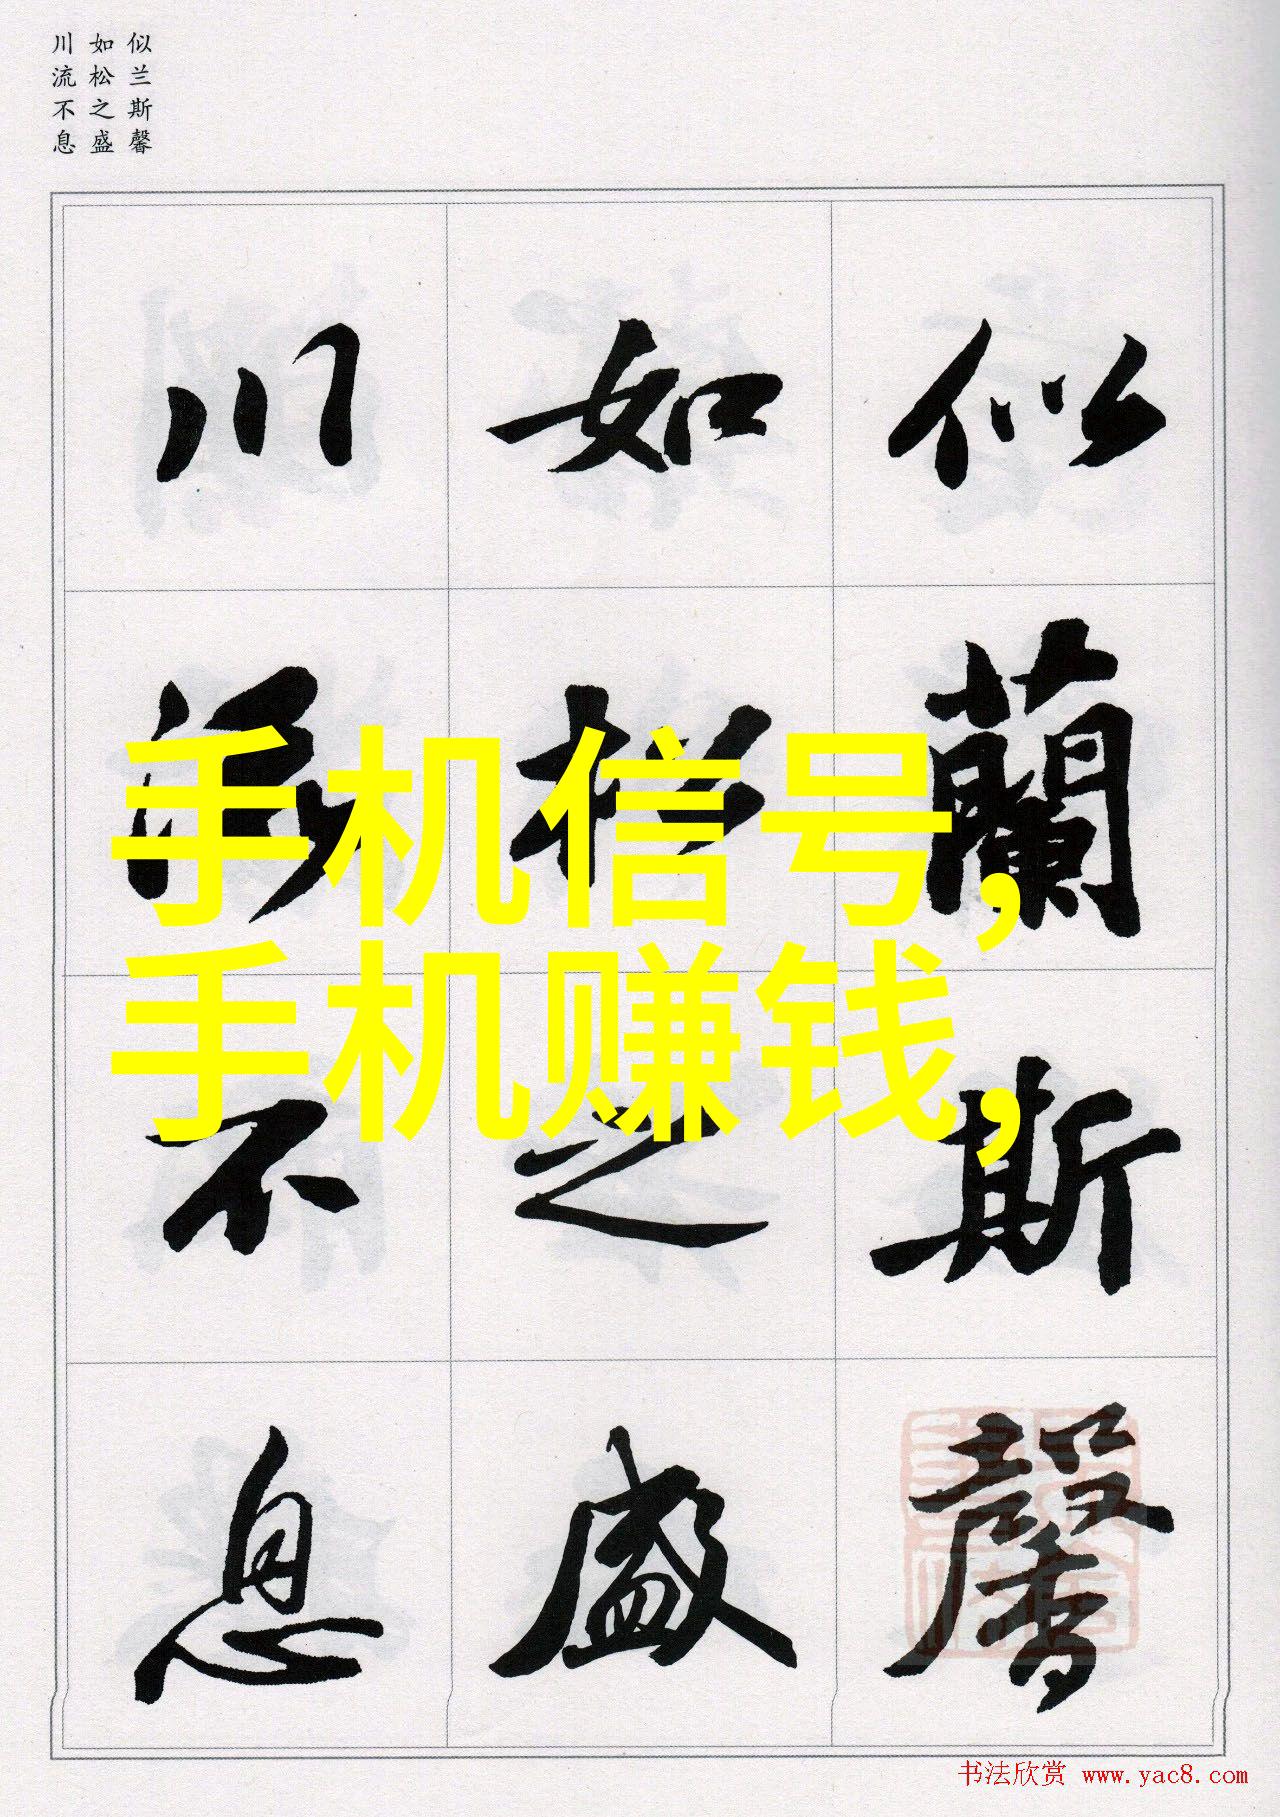 似兰斯馨
如松之盛
川流不息
似蘭斯馨
如松之盛
川流不息
手机信号,
手机赚钱,
书法欣赏 www.yac8.com